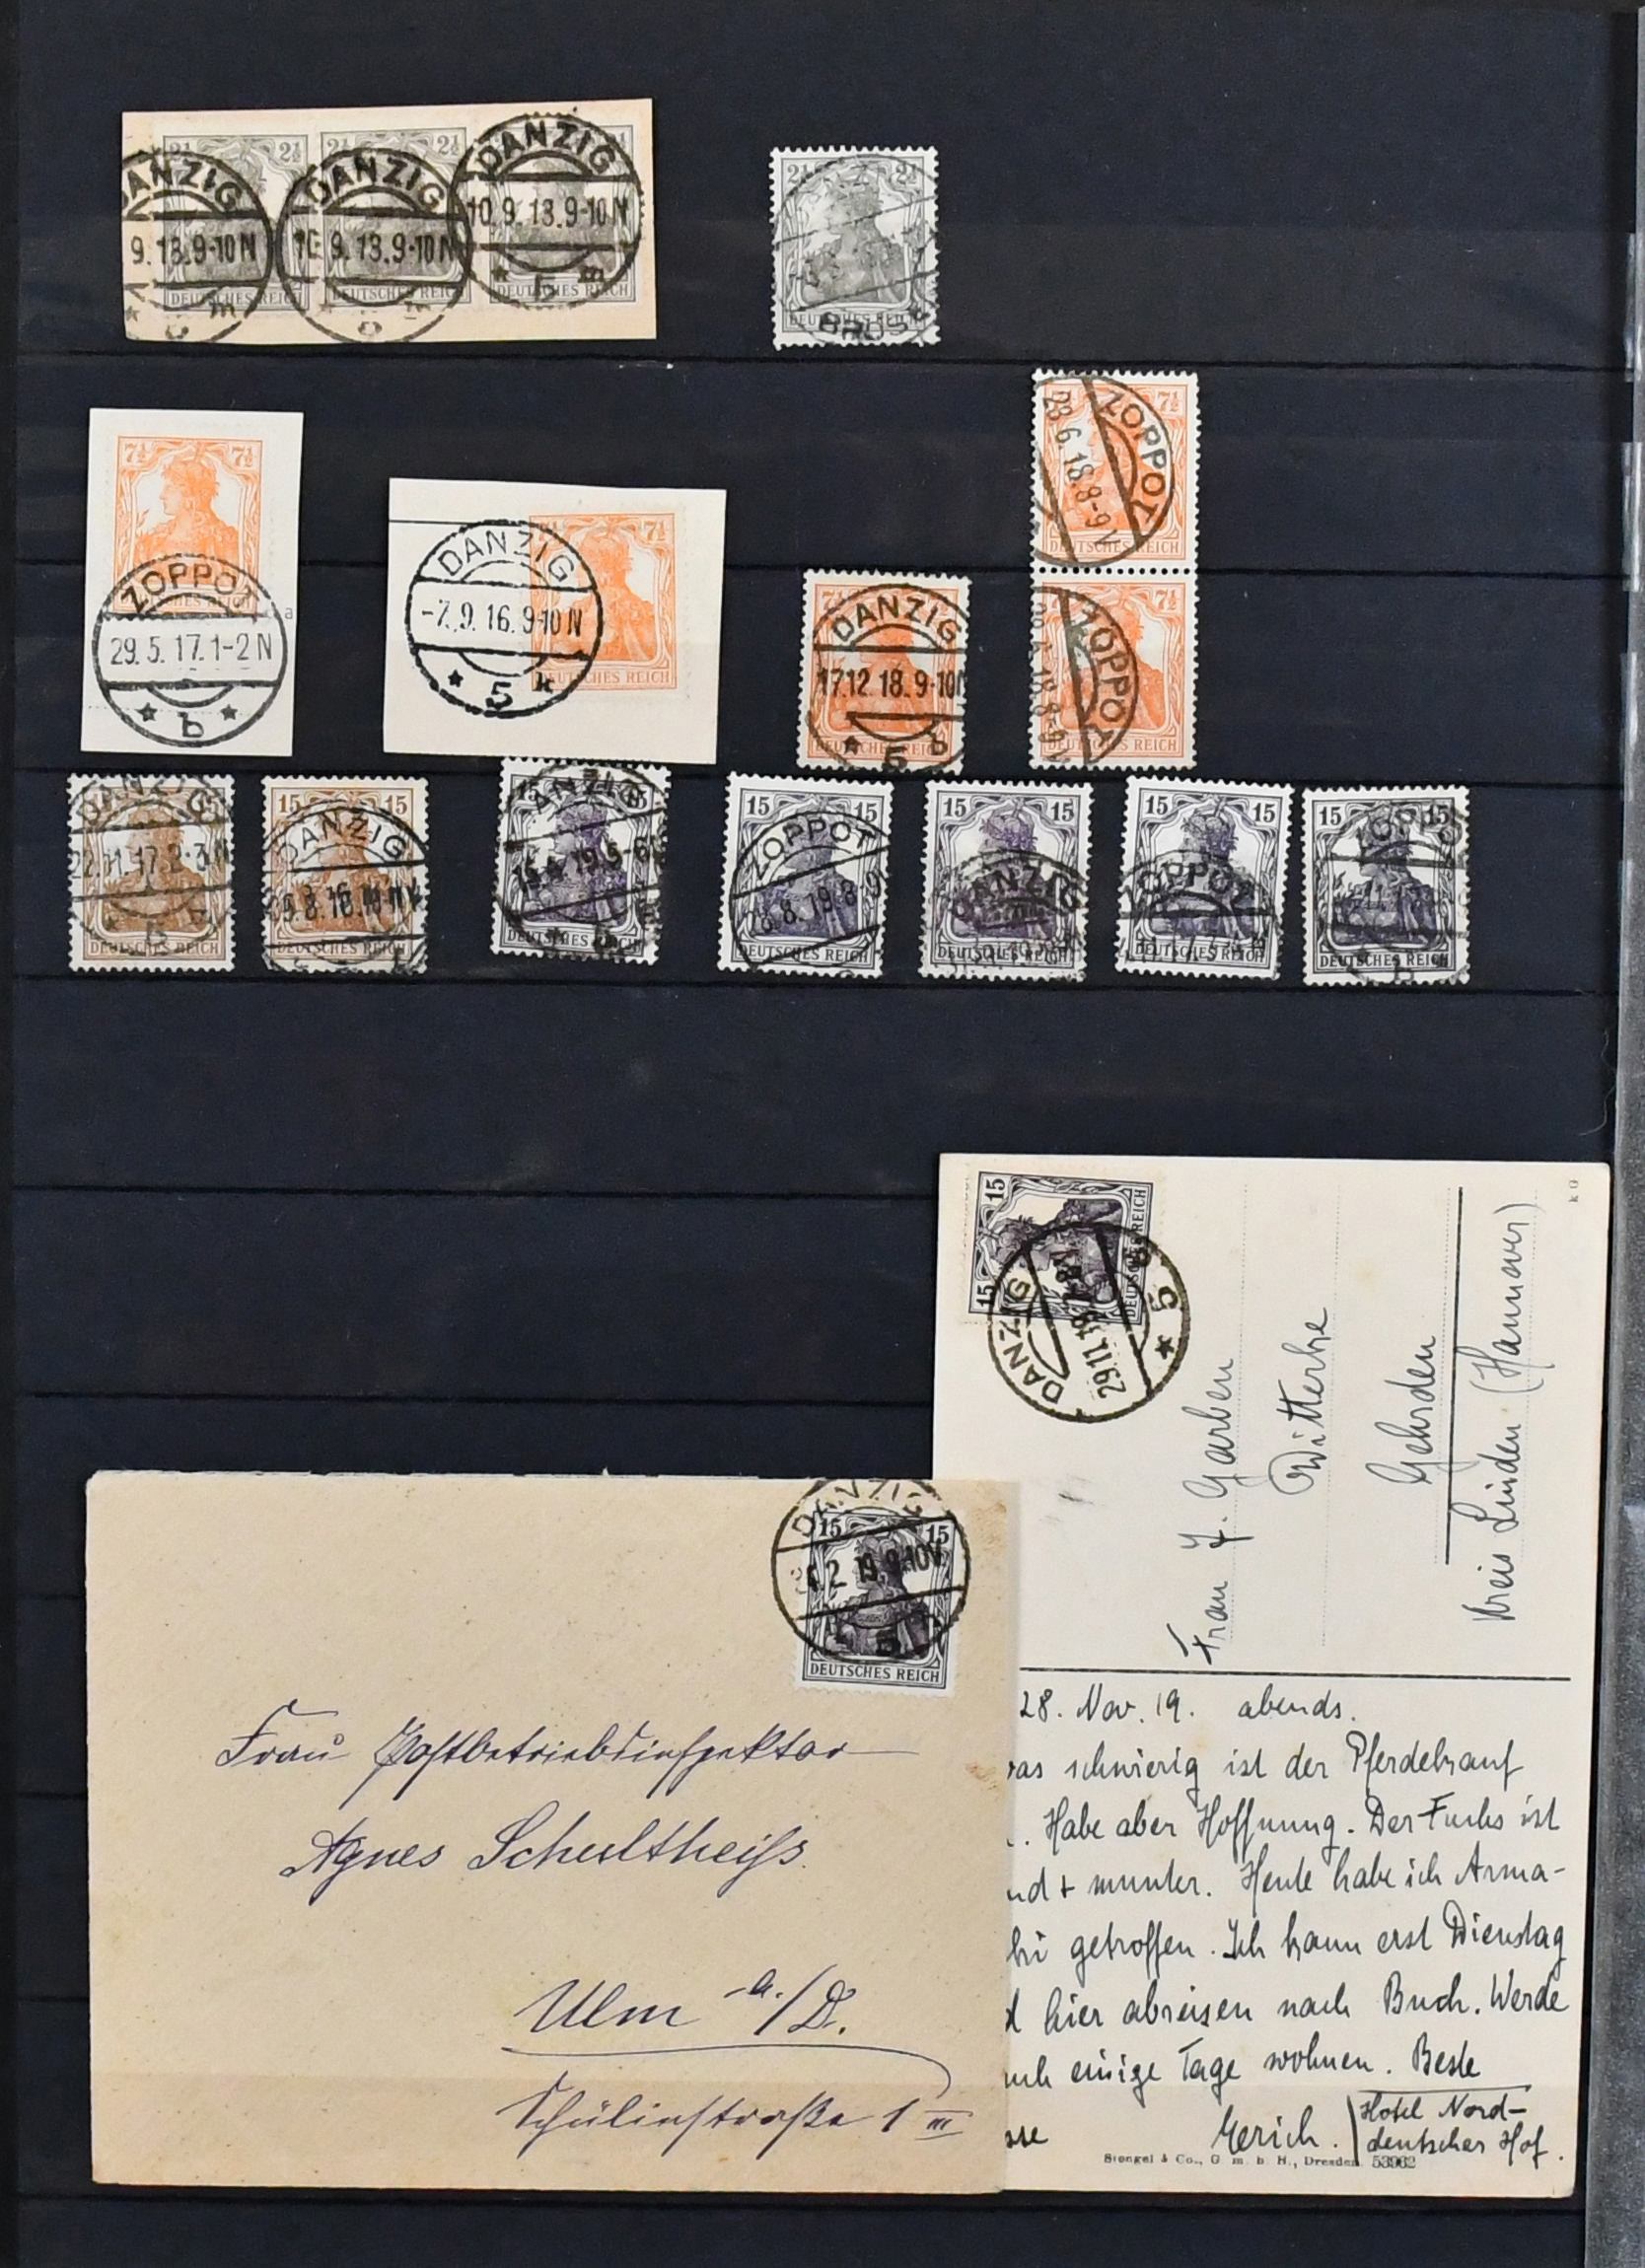 2½ 2½ 2½
DANZIG DANZIG DANZIG
9.13.9-10N 10.9.13.9-10N 10.9.13.9-10N
* b m
DEUTSCHES REICH DEUTSCHES REICH DEUTSCHES REICH
2½ 2½
DEUTSCHES REICH
BRÖS
7½ 7½
ZOPPOT
29.5.17.1-2N
* b *
7½
DANZIG
-7.9.16.9-10N
* 5 k
DEUTSCHES REICH
DANZIG
17.12.18.9-10N
* 5 b
7½
ZOPPOT
28.6.18.8-9V
DEUTSCHES REICH
7½
ZOPPOT
18.8-9V
DEUTSCHES REICH
DANZIG 15
22.11.17.2-3N
DEUTSCHES REICH
15 15
DANZIG
DEUTSCHES REICH
15
DANZIG
DEUTSCHES REICH
15 15
ZOPPOT
8.19.8-9
DEUTSCHES REICH
15 15
DANZIG
DEUTSCHES REICH
15 15
ZOPPOT
DEUTSCHES REICH
15 15
ZOPPOT
DEUTSCHES REICH
15 15
DEUTSCHES REICH
DANZIG
29.11.19
* 5
Frau J. Garben
Gehrden
Kreis Linden (Hannover)
28. Nov. 19. abends.
schwierig ist der
Habe aber Hoffnung. Der Fuchs ist
munter. Heute habe ich Arma-
getroffen. Ich kann erst Dienstag
hier abreisen nach Buch. Werde
einige Tage wohnen. Beste
Hotel Nord-
deutscher Hof.
Stengel & Co., G. m. b. H., Dresden 53962
DANZIG
15 15
2.19.9-10V
DEUTSCHES REICH
Frau Postbetriebsinspektor
Agnes Schultheiß.
Ulm a./D.
Schülinstraße 1 III